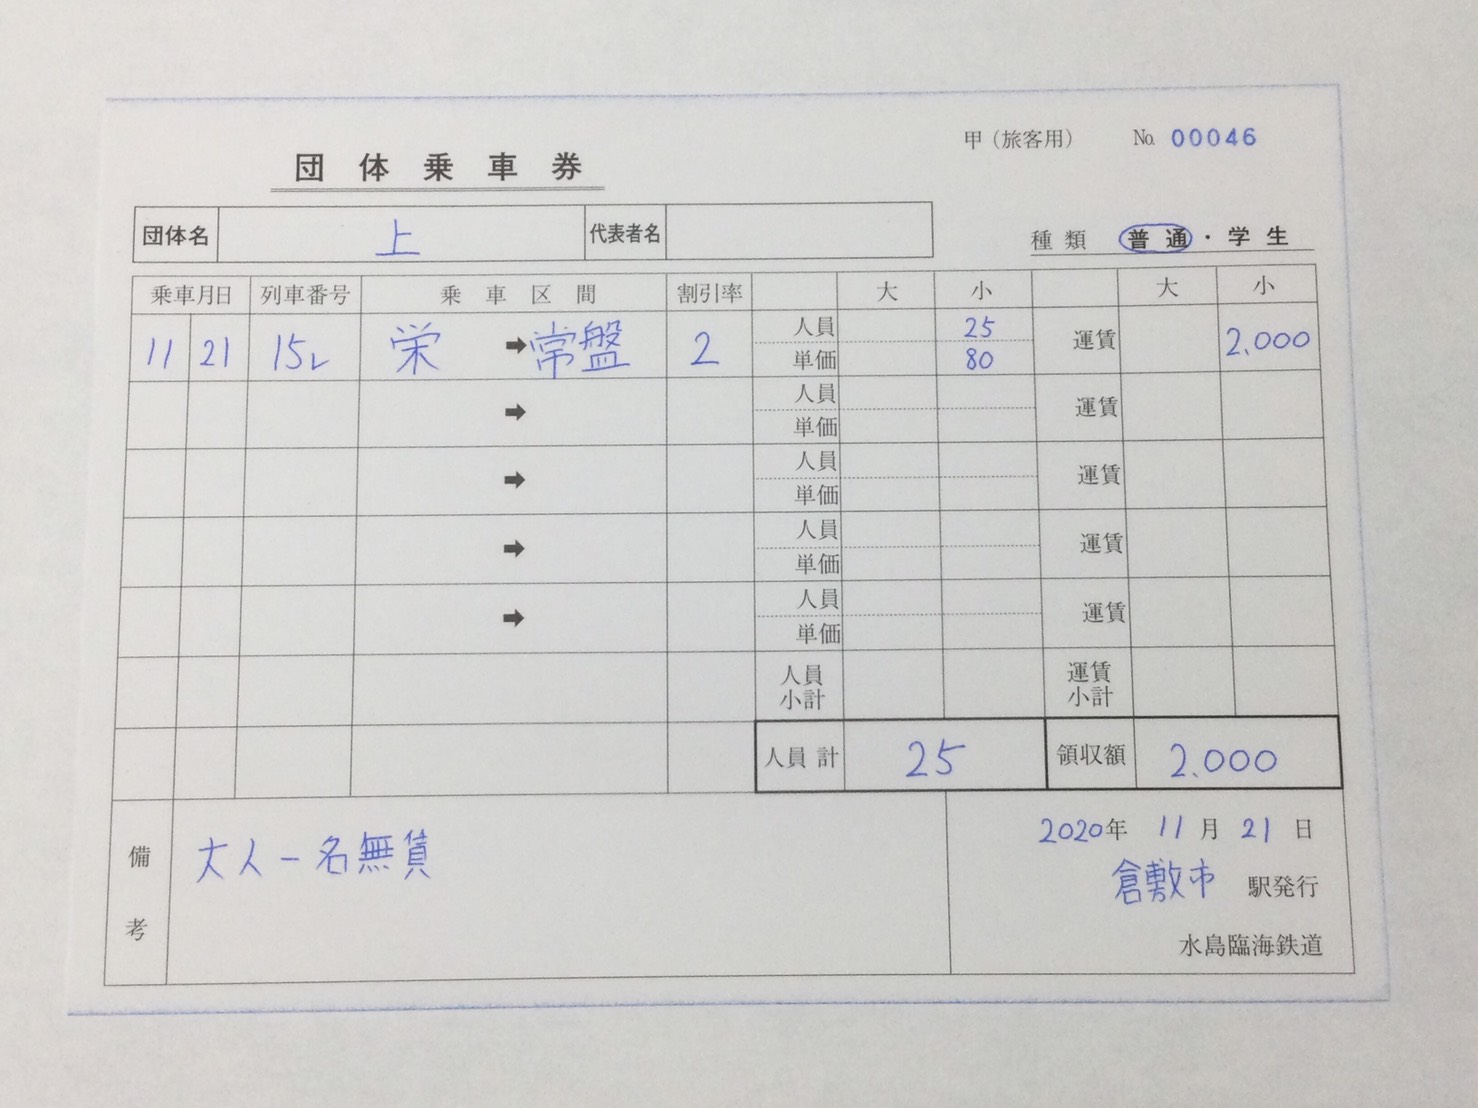 甲（旅客用） № 00046
団体乗車券
団体名 上 代表者名
種類 普通・学生
乗車月日 列車番号 乗車区間 割引率 大 小 大 小
11 21 15レ 栄 ➡ 常盤 2 人員 25 運賃 2,000
単価 80
➡ 人員 運賃
単価
➡ 人員 運賃
単価
➡ 人員 運賃
単価
➡ 人員 運賃
単価
人員小計 運賃小計
人員計 25 領収額 2.000
備考 大人一名無賃
2020年 11月 21日
倉敷市 駅発行
水島臨海鉄道